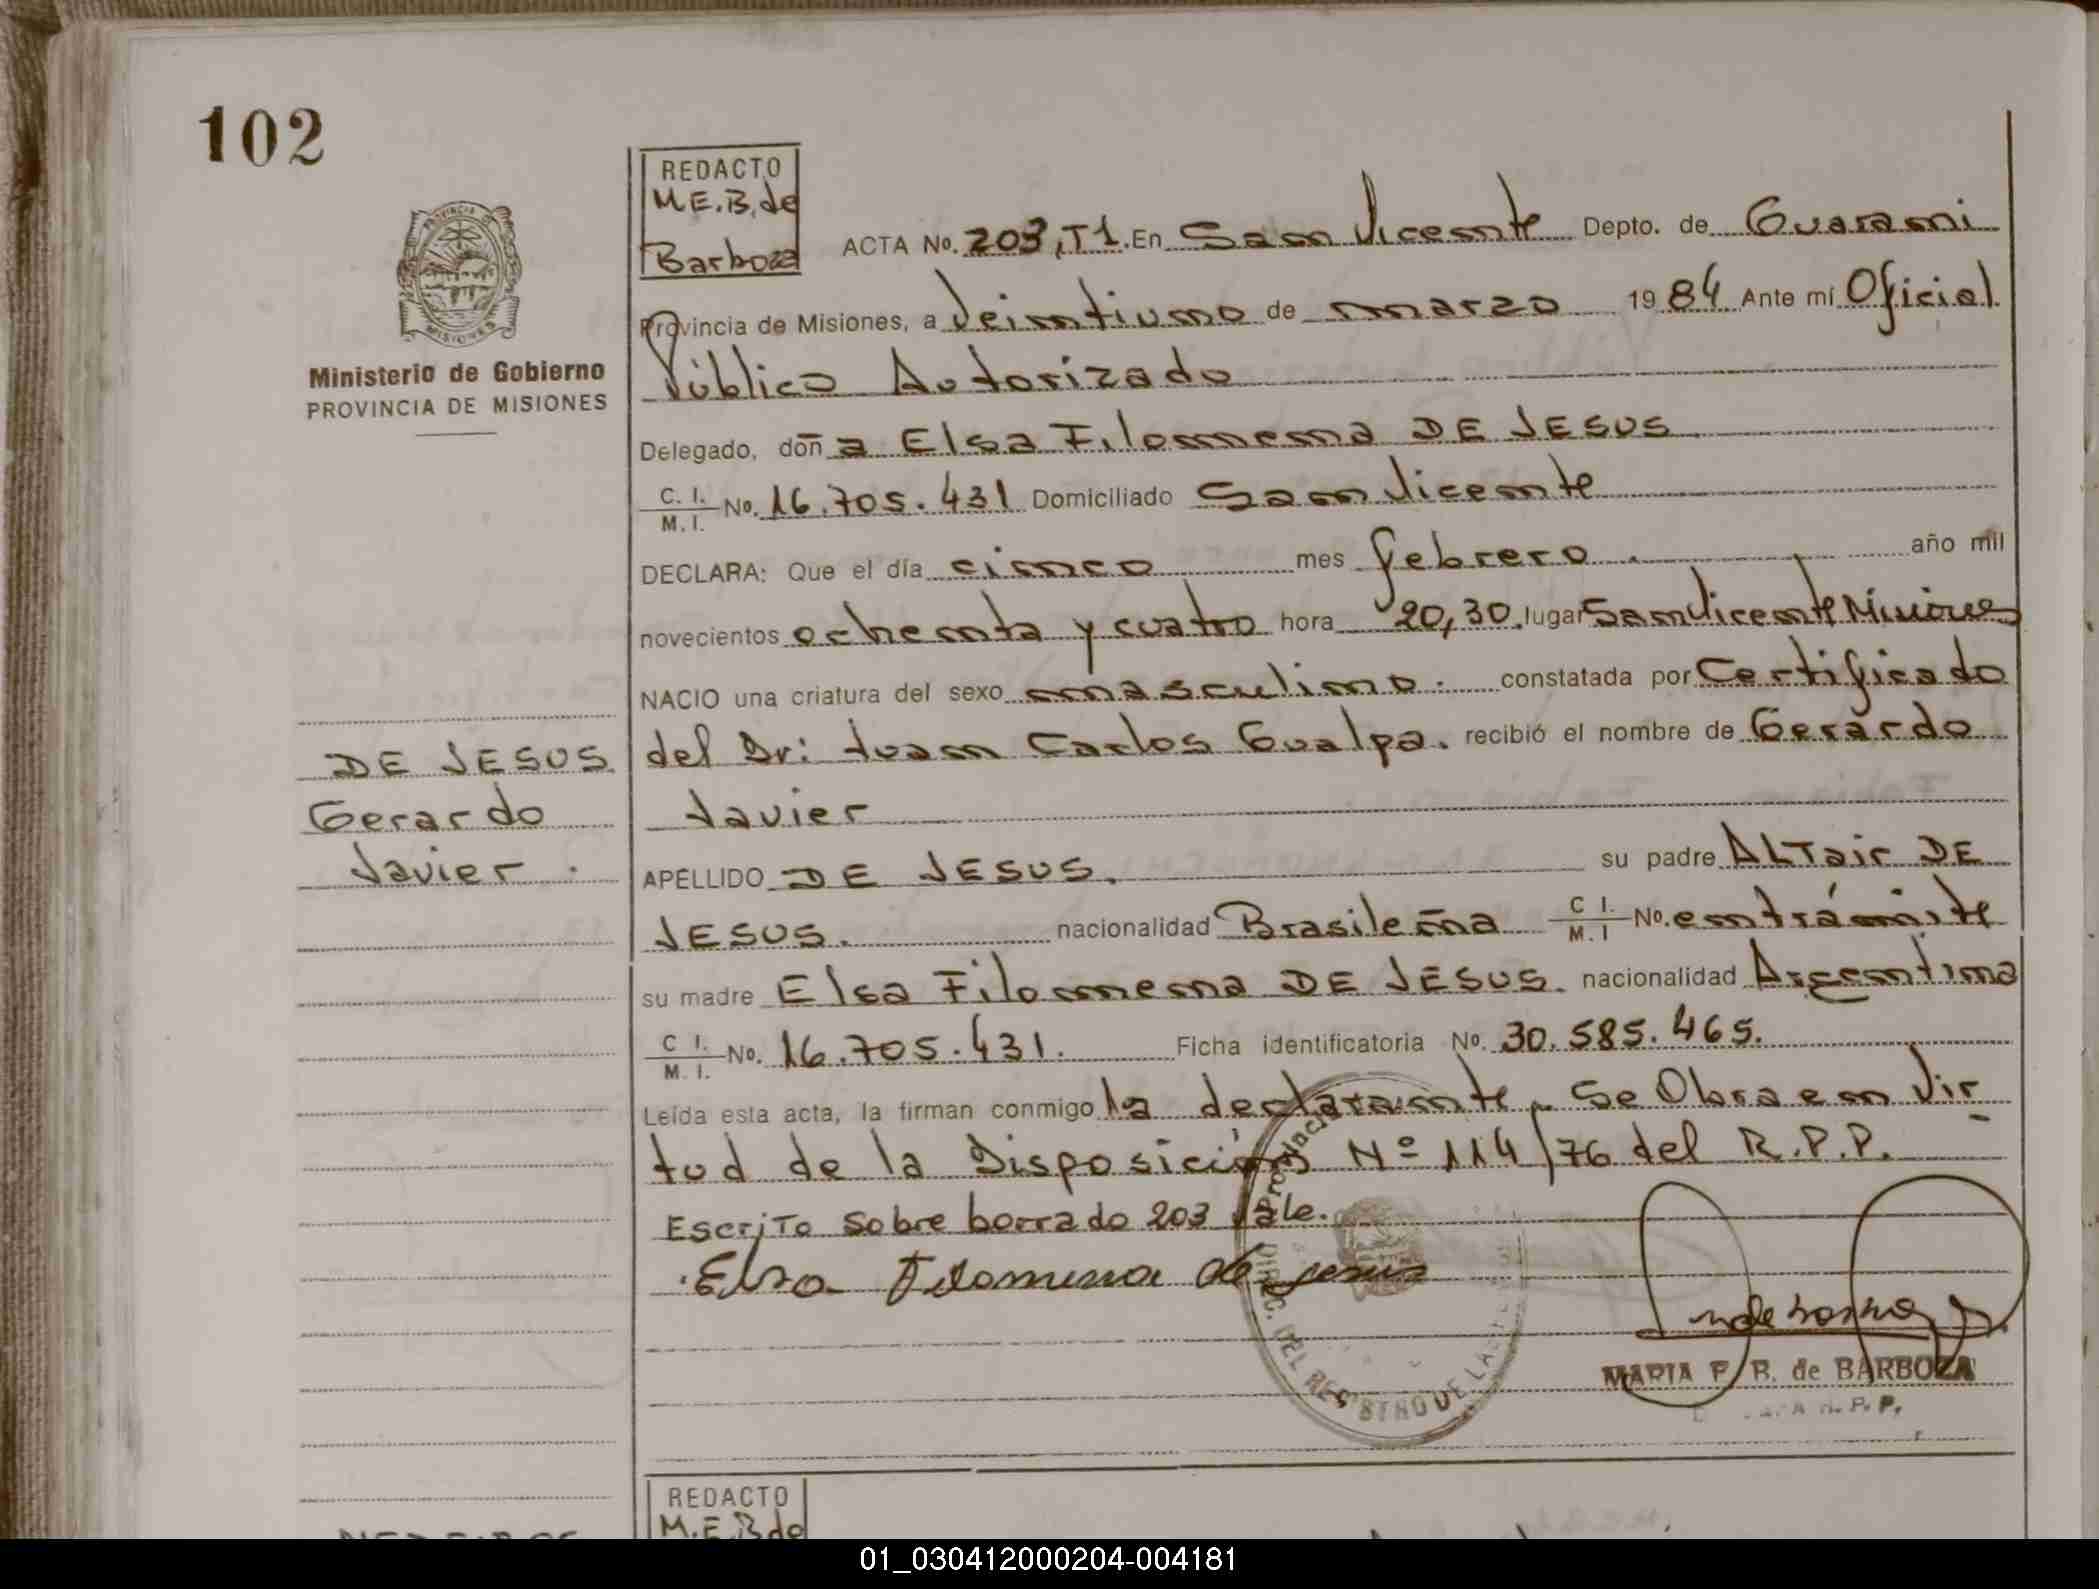 102
REDACTO
M.E.B. de
Barboza
ACTA No. 203, T1. En San Vicente Depto. de Guarani
Provincia de Misiones, a Veintiuno de marzo 1984 Ante mí Oficial
Público Autorizado
Ministerio de Gobierno
PROVINCIA DE MISIONES
Delegado, doña Elsa Filomena DE JESUS
C. I. / M. I. No. 16.705.431 Domiciliado San Vicente
DECLARA: Que el día cinco mes febrero año mil
novecientos ochenta y cuatro hora 20,30 lugar San Vicente Misiones
NACIO una criatura del sexo masculino. constatada por Certificado
del Dr: Juan Carlos Gualpa. recibió el nombre de Gerardo
Javier
DE JESUS
Gerardo
Javier.
APELLIDO DE JESUS. su padre ALTair DE
JESUS. nacionalidad Brasileña C I. / M. I No. en trámite
su madre Elsa Filomena DE JESUS. nacionalidad Argentina
C I. / M. I. No. 16.705.431. Ficha identificatoria No. 30.585.465.
Leída esta acta, la firman conmigo la declarante. Se Obra en Vir
tud de la Disposición Nº 114/76 del R.P.P.
Escrito sobre borrado 203 Vale.
Elsa Filomena de Jesus
Provincia
DIREC. DEL REGISTRO DE LAS
MARIA E. B. de BARBOZA
R. P. P.
REDACTO
M.E.B de
01_030412000204-004181